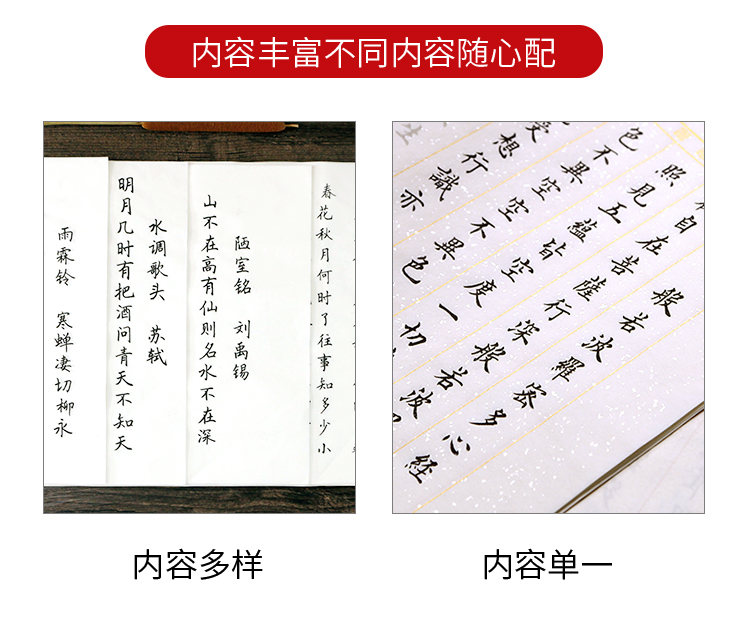 内容丰富不同内容随心配
春花秋月何时了往事知多少小
陋室铭 刘禹锡
山不在高有仙则名水不在深
水调歌头 苏轼
明月几时有把酒问青天不知天
雨霖铃 寒蝉凄切柳永
般若波羅密多心経
自在菩薩行深般若波
照見五蘊皆空度一切
色不異空空不異色
受想行識亦
内容多样
内容单一